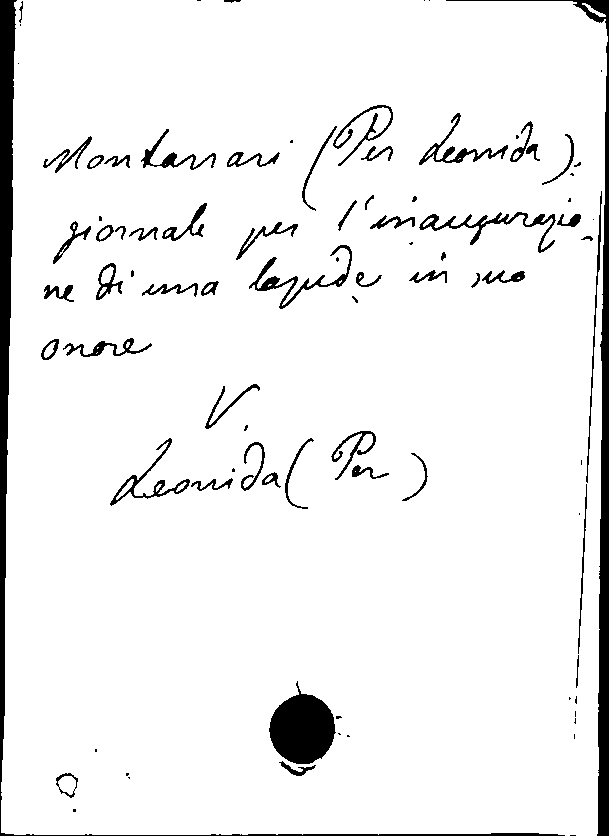 Montanari (Per Leonida).
giornale per l'inaugurazio_
ne di una lapide in suo
onore
V.
Leonida (Per)